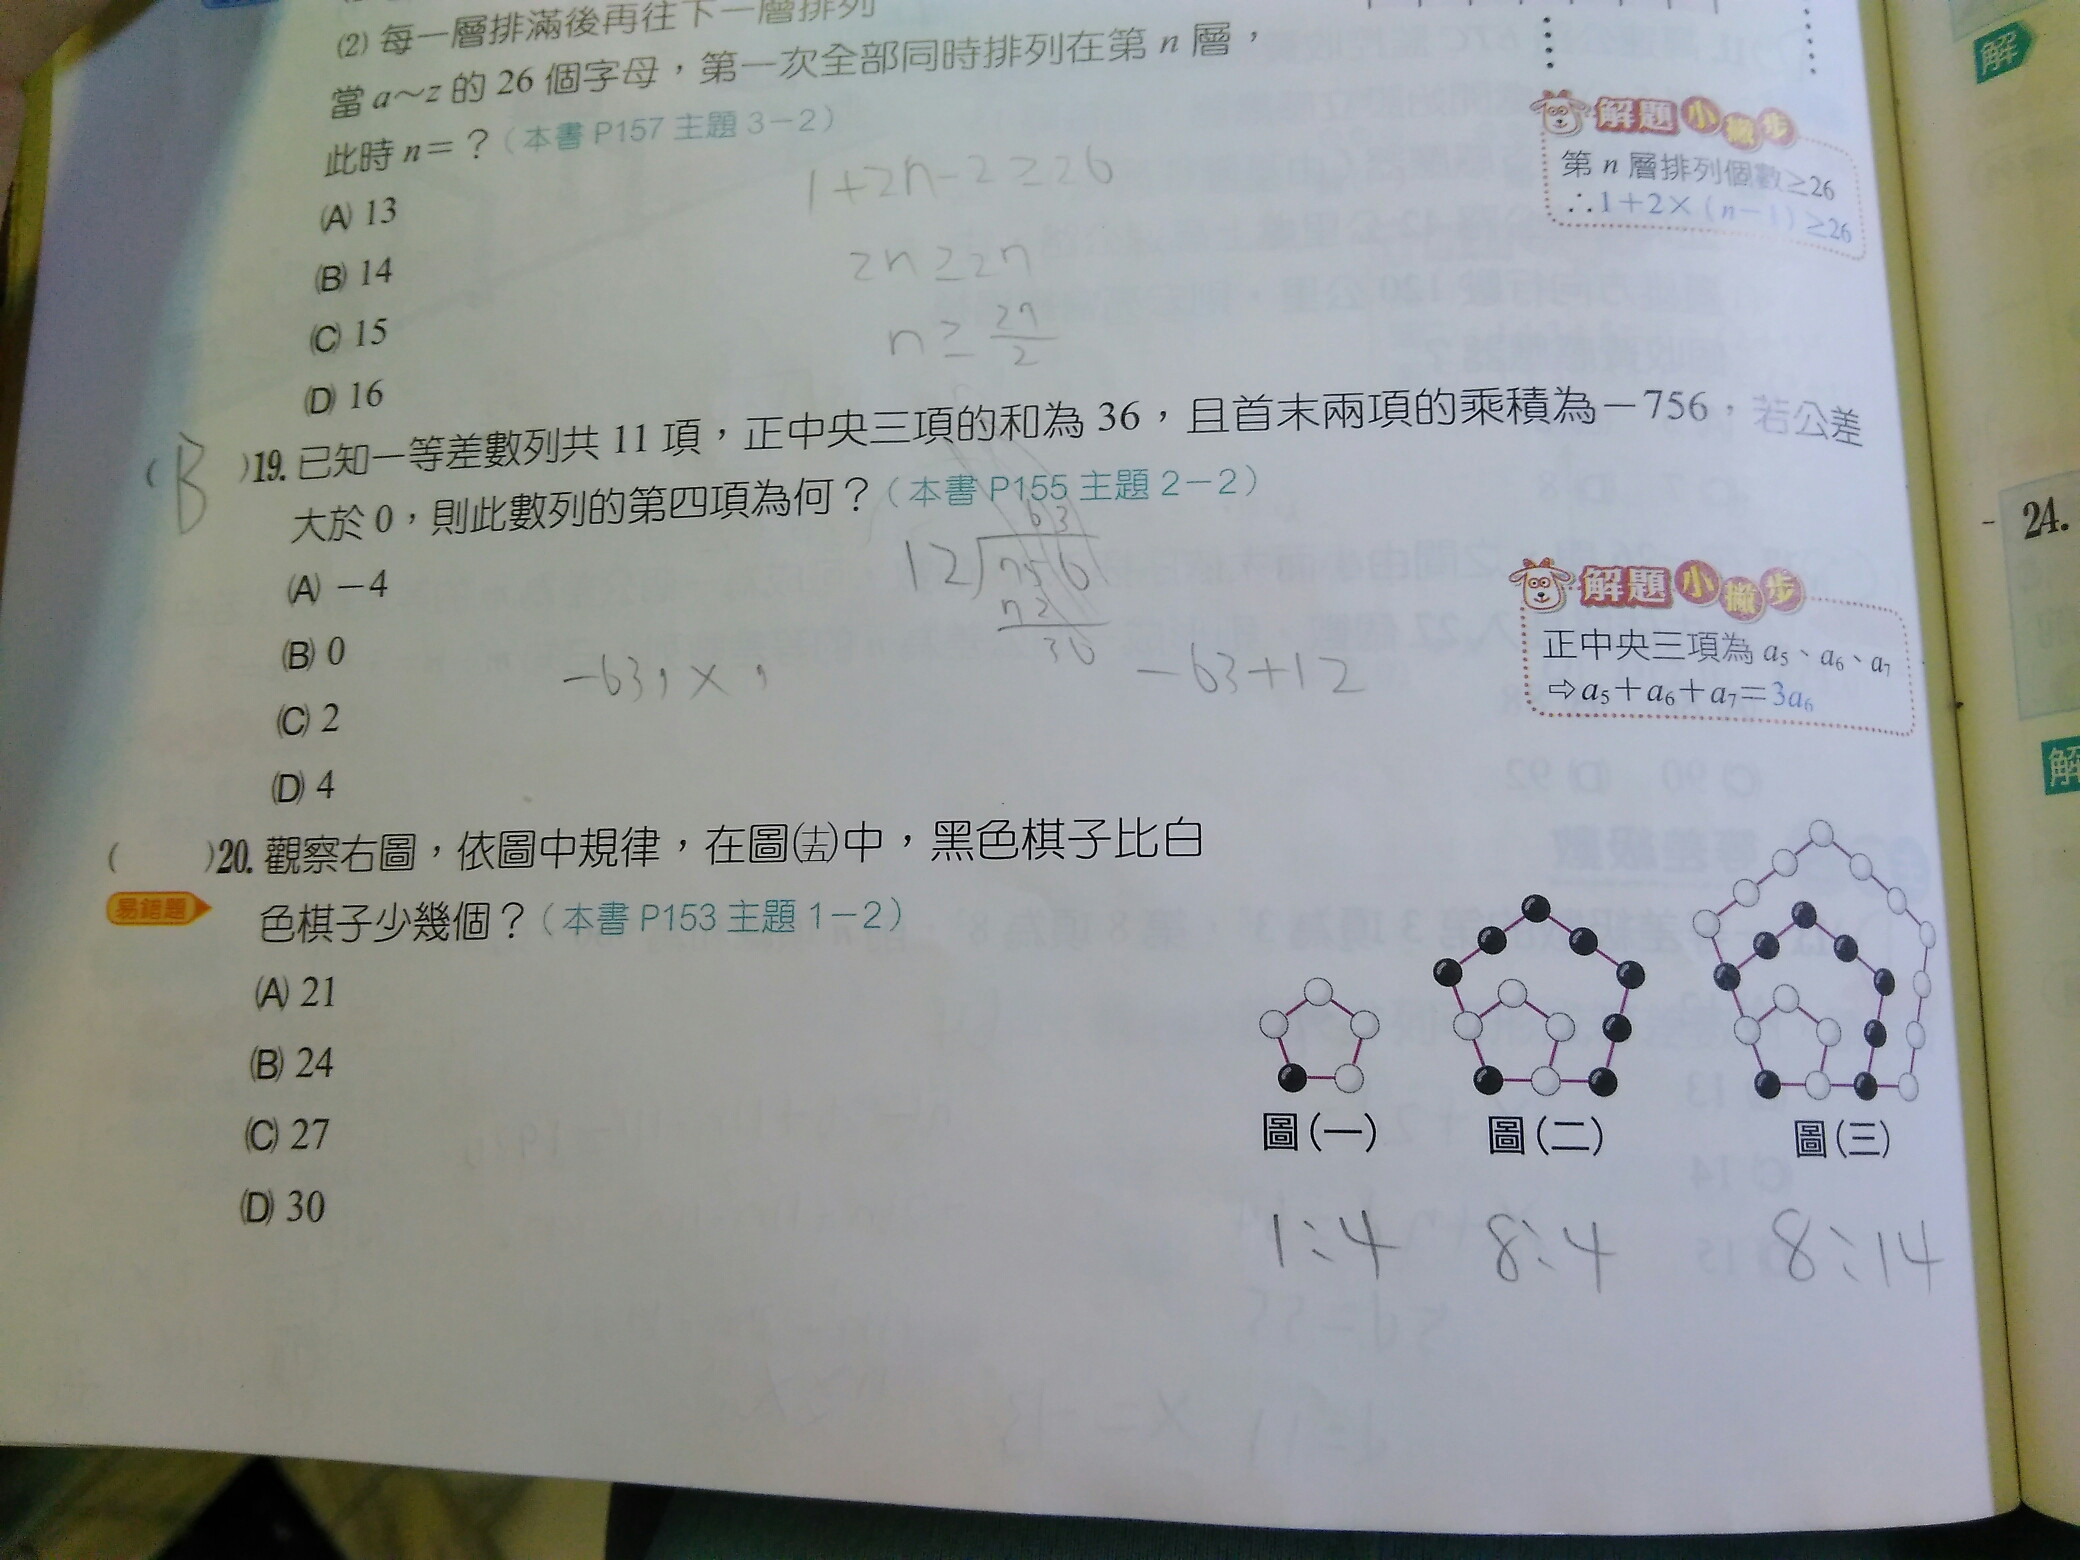 (2) 每一層排滿後再往下一層排列
當 a～z 的 26 個字母，第一次全部同時排列在第 n 層，
此時 n＝？（本書 P157 主題 3－2）
(A) 13
(B) 14
(C) 15
(D) 16
1+2n-2≥26
2n≥27
n≥27/2
解題小撇步
第 n 層排列個數≥26
∴1＋2×(n－1)≥26
(B)19. 已知一等差數列共 11 項，正中央三項的和為 36，且首末兩項的乘積為－756，若公差
大於 0，則此數列的第四項為何？（本書 P155 主題 2－2）
(A) －4
(B) 0
(C) 2
(D) 4
63
12)756
72
36
-63, x,
-63+12
解題小撇步
正中央三項為 a5、a6、a7
⇨a5＋a6＋a7＝3a6
( )20. 觀察右圖，依圖中規律，在圖(十五)中，黑色棋子比白
易錯題
色棋子少幾個？（本書 P153 主題 1－2）
(A) 21
(B) 24
(C) 27
(D) 30
圖(一) 圖(二) 圖(三)
1:4 8:4 8:14
解
24.
解